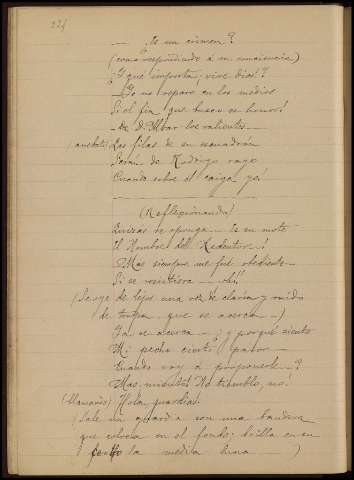 224
— Es un crimen?
(como respondiendo á su conciencia)
¿Y que importa, vive Dios!?
— Yo no reparo en los medios
Si el fin que busco es honroso!
— de D. Albar los valientes —
Las filas de su escuadrón
Serán de Rodrigo rayo
Cuando sobre él caiga yo!
(Reflexionando)
Quizas se oponga — Es en mote
El Hombre del Redentor!
Mas siempre me fué obediente —
Si se resistiera — oh!!
(Se oye de lejos una voz de clarín y ruido
de tropa que se acerca —)
Ya se acerca — ; y porqué siento
Mi pecho cierto pavor —
Cuando voy á proponerle —?
Mas, mientes! No tiemblo, no!
(llamando) Hola, guardias!
(Sale un guardia con una bandera
que coloca en el fondo; brilla en su
centro la media luna —)